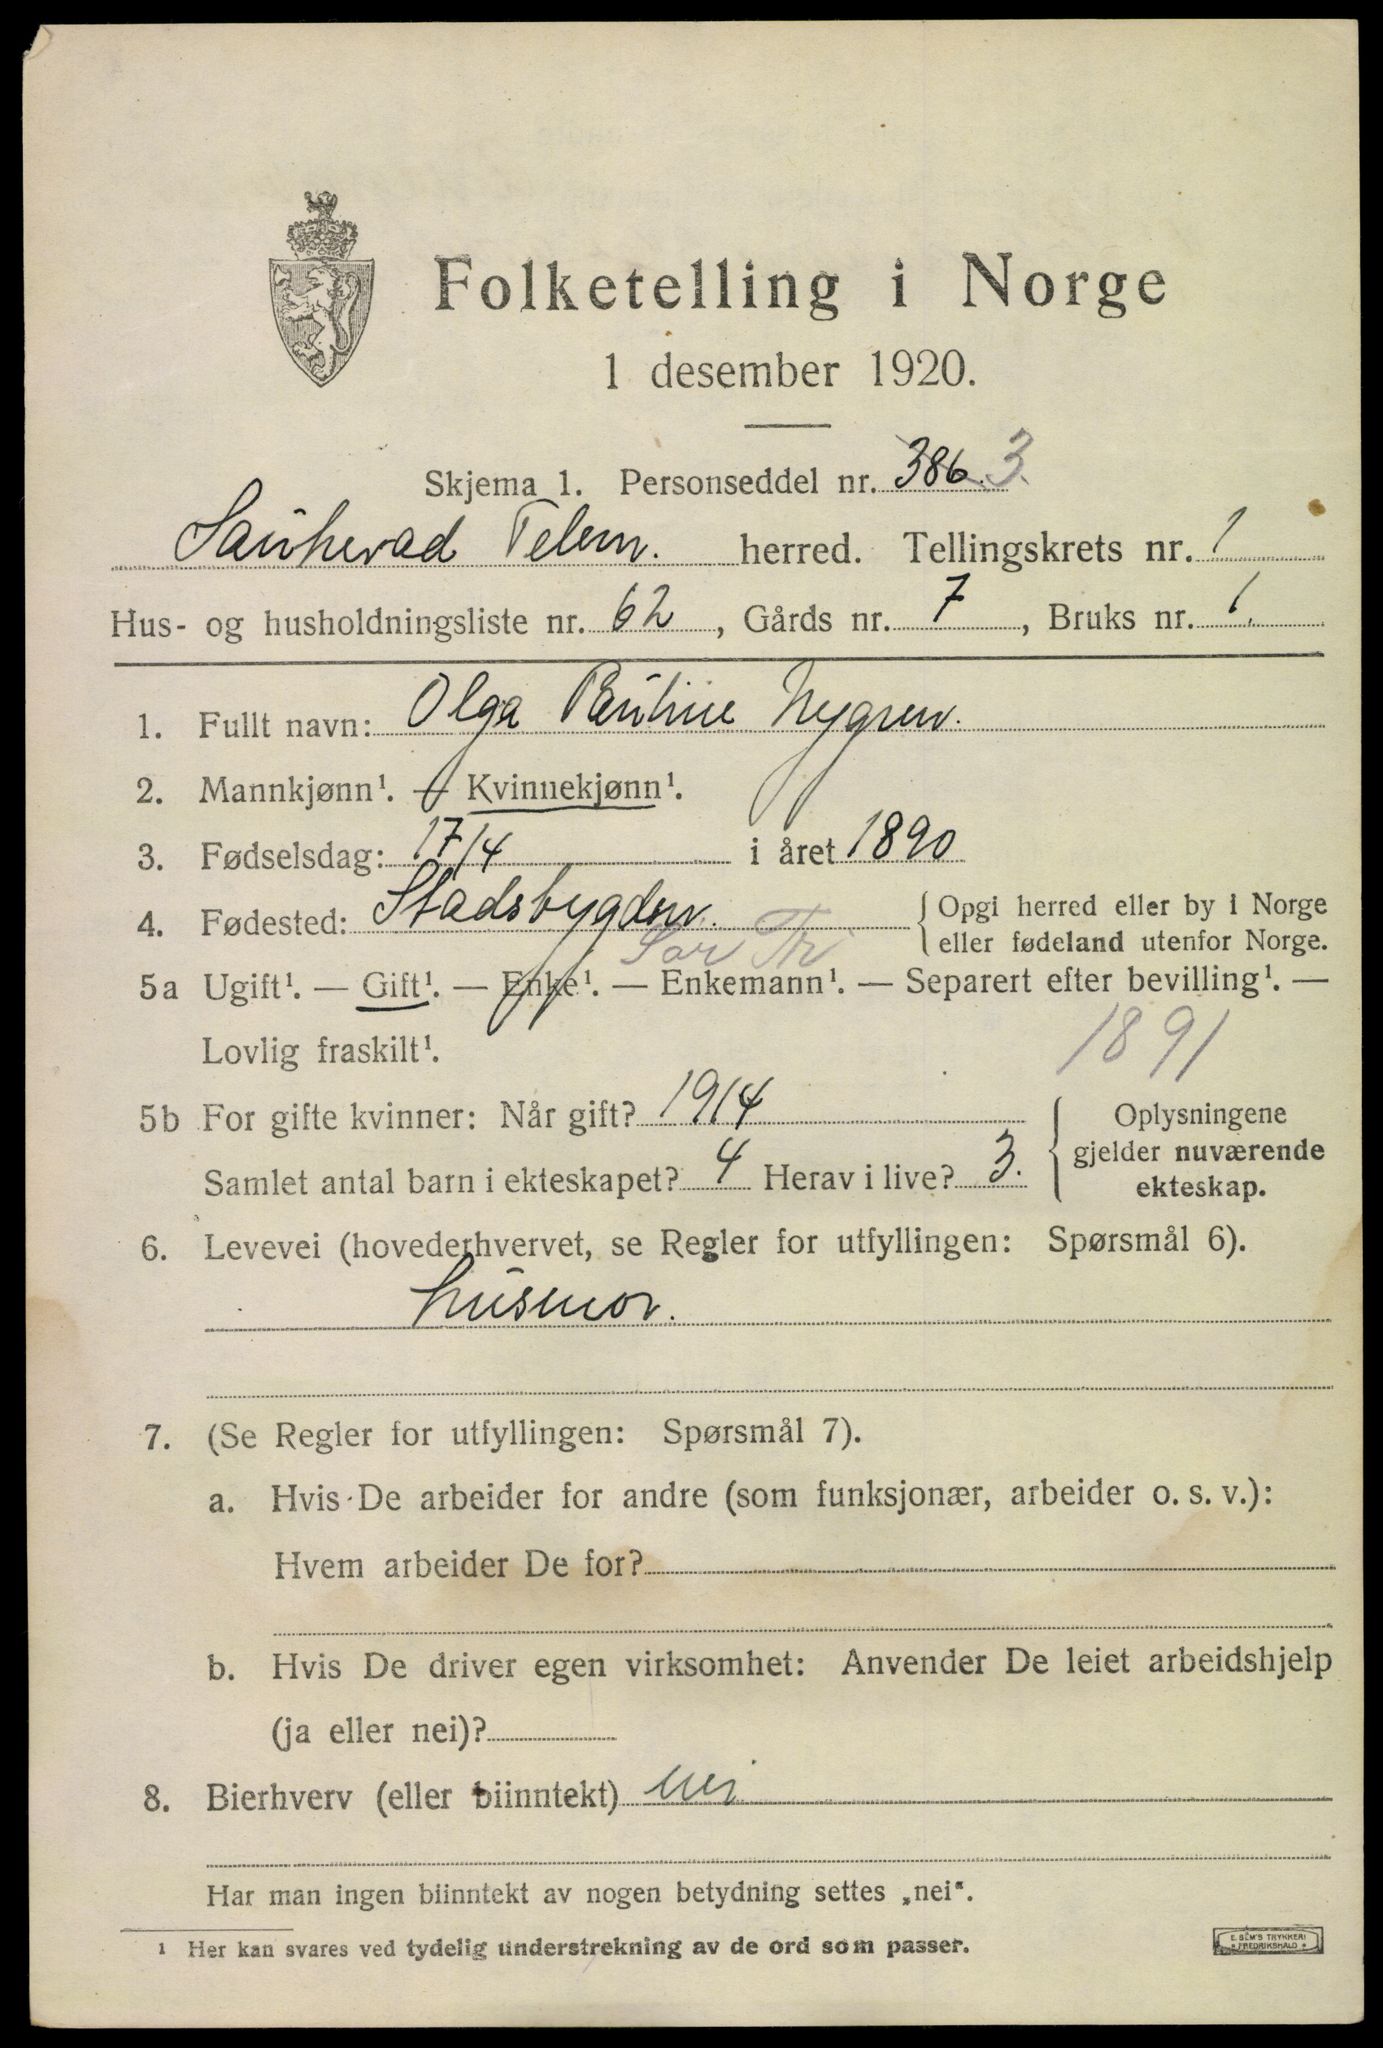 Folketelling i Norge
1 desember 1920.
Skjema 1. Personseddel nr. 386. 3.
Sauherad Telem. herred. Tellingskrets nr. 1
Hus- og husholdningsliste nr. 62, Gårds nr. 7, Bruks nr. 1.
1. Fullt navn: Olga Pauline Nygren.
2. Mannkjønn¹. — Kvinnekjønn¹.
3. Fødselsdag: 17/4 i året 1890
4. Fødested: Stadsbygden. { Opgi herred eller by i Norge
eller fødeland utenfor Norge.
Sør Tr
5a Ugift¹. — Gift¹. — Enke¹. — Enkemann¹. — Separert efter bevilling¹. —
Lovlig fraskilt¹. 1891
5b For gifte kvinner: Når gift? 1914
Samlet antal barn i ekteskapet? 4 Herav i live? 3.
{ Oplysningene
gjelder nuværende
ekteskap.
6. Levevei (hovederhvervet, se Regler for utfyllingen: Spørsmål 6).
husmor.
7. (Se Regler for utfyllingen: Spørsmål 7).
a. Hvis De arbeider for andre (som funksjonær, arbeider o. s. v.):
Hvem arbeider De for?
b. Hvis De driver egen virksomhet: Anvender De leiet arbeidshjelp
(ja eller nei)?
8. Bierhverv (eller biinntekt) nei
Har man ingen biinntekt av nogen betydning settes „nei".
¹ Her kan svares ved tydelig understrekning av de ord som passer.
E. SEM'S TRYKKERI
* FREDRIKSHALD *